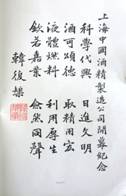 上海中國酒精製造公司開幕紀念
科學代興 日進文明
酒可頌德 取精用宏
液體燃料 利用厚生
欽若嘉業 僉然同聲
韓復榘